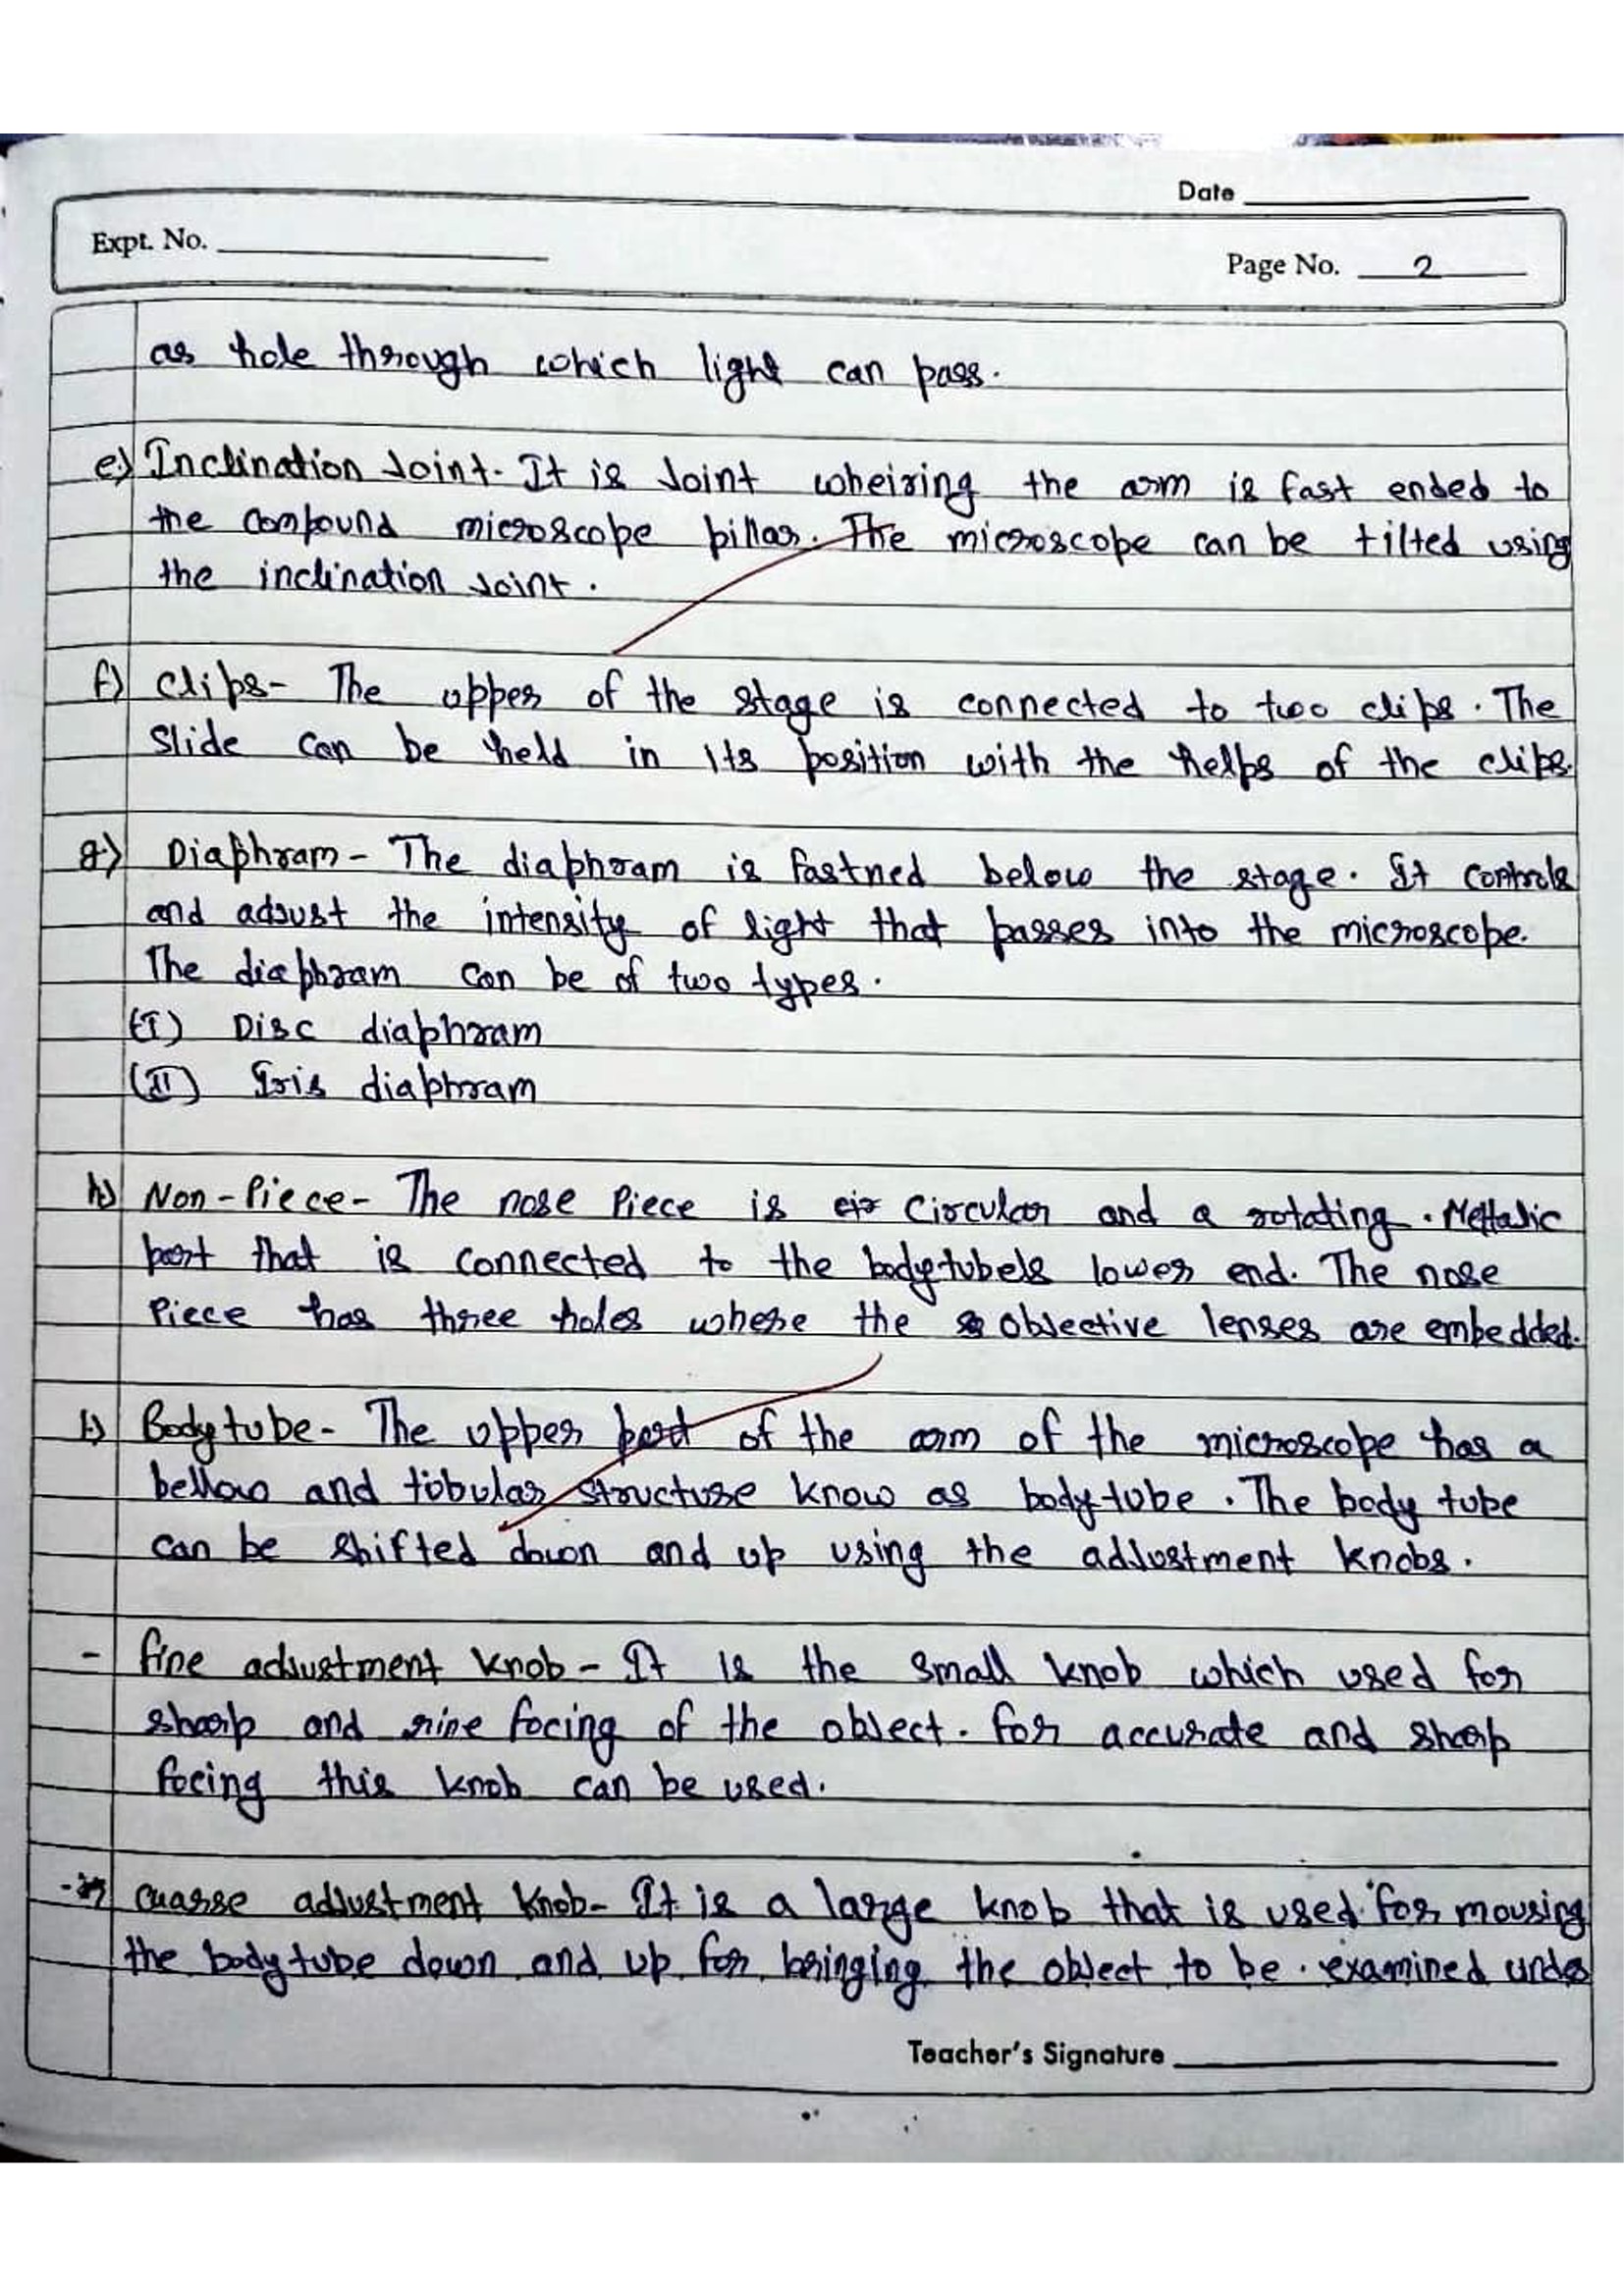 Date
Expt. No.
Page No. 2
as hole through which light can pass.
e) Inclination Joint- It is Joint wheiring the arm is fast ended to
the compound microscope pillar. The microscope can be tilted using
the inclination Joint.
f) Clips- The upper of the stage is connected to two clips. The
slide can be held in its position with the helps of the clips.
g) Diaphram - The diaphram is fastned below the stage. It controls
and adjust the intensity of light that passes into the microscope.
The diaphram can be of two types.
(I) Disc diaphram
(II) Iris diaphram
h) Non-Piece- The nose Piece is cir Circular and a rotating. Mettalic
part that is connected to the bodytubels lower end. The nose
Piece has three holes where the objective lenses are embedded.
Body tube- The upper part of the arm of the microscope has a
bellow and tubular structure know as body tube. The body tube
can be shifted down and up using the adjustment knobs.
- fine adjustment knob- It is the small knob which used for
sharp and nine focing of the object. for accurate and sharp
focing this knob can be used.
- cuarse adjustment knob- It is a large knob that is used for mousing
the body tube down and up for bringing the object to be. examined under
Teacher's Signature